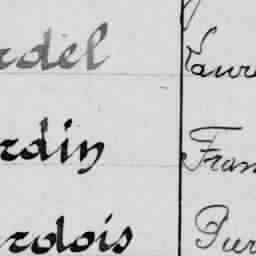 rdel Laure
rdin Fran
rdois Pier